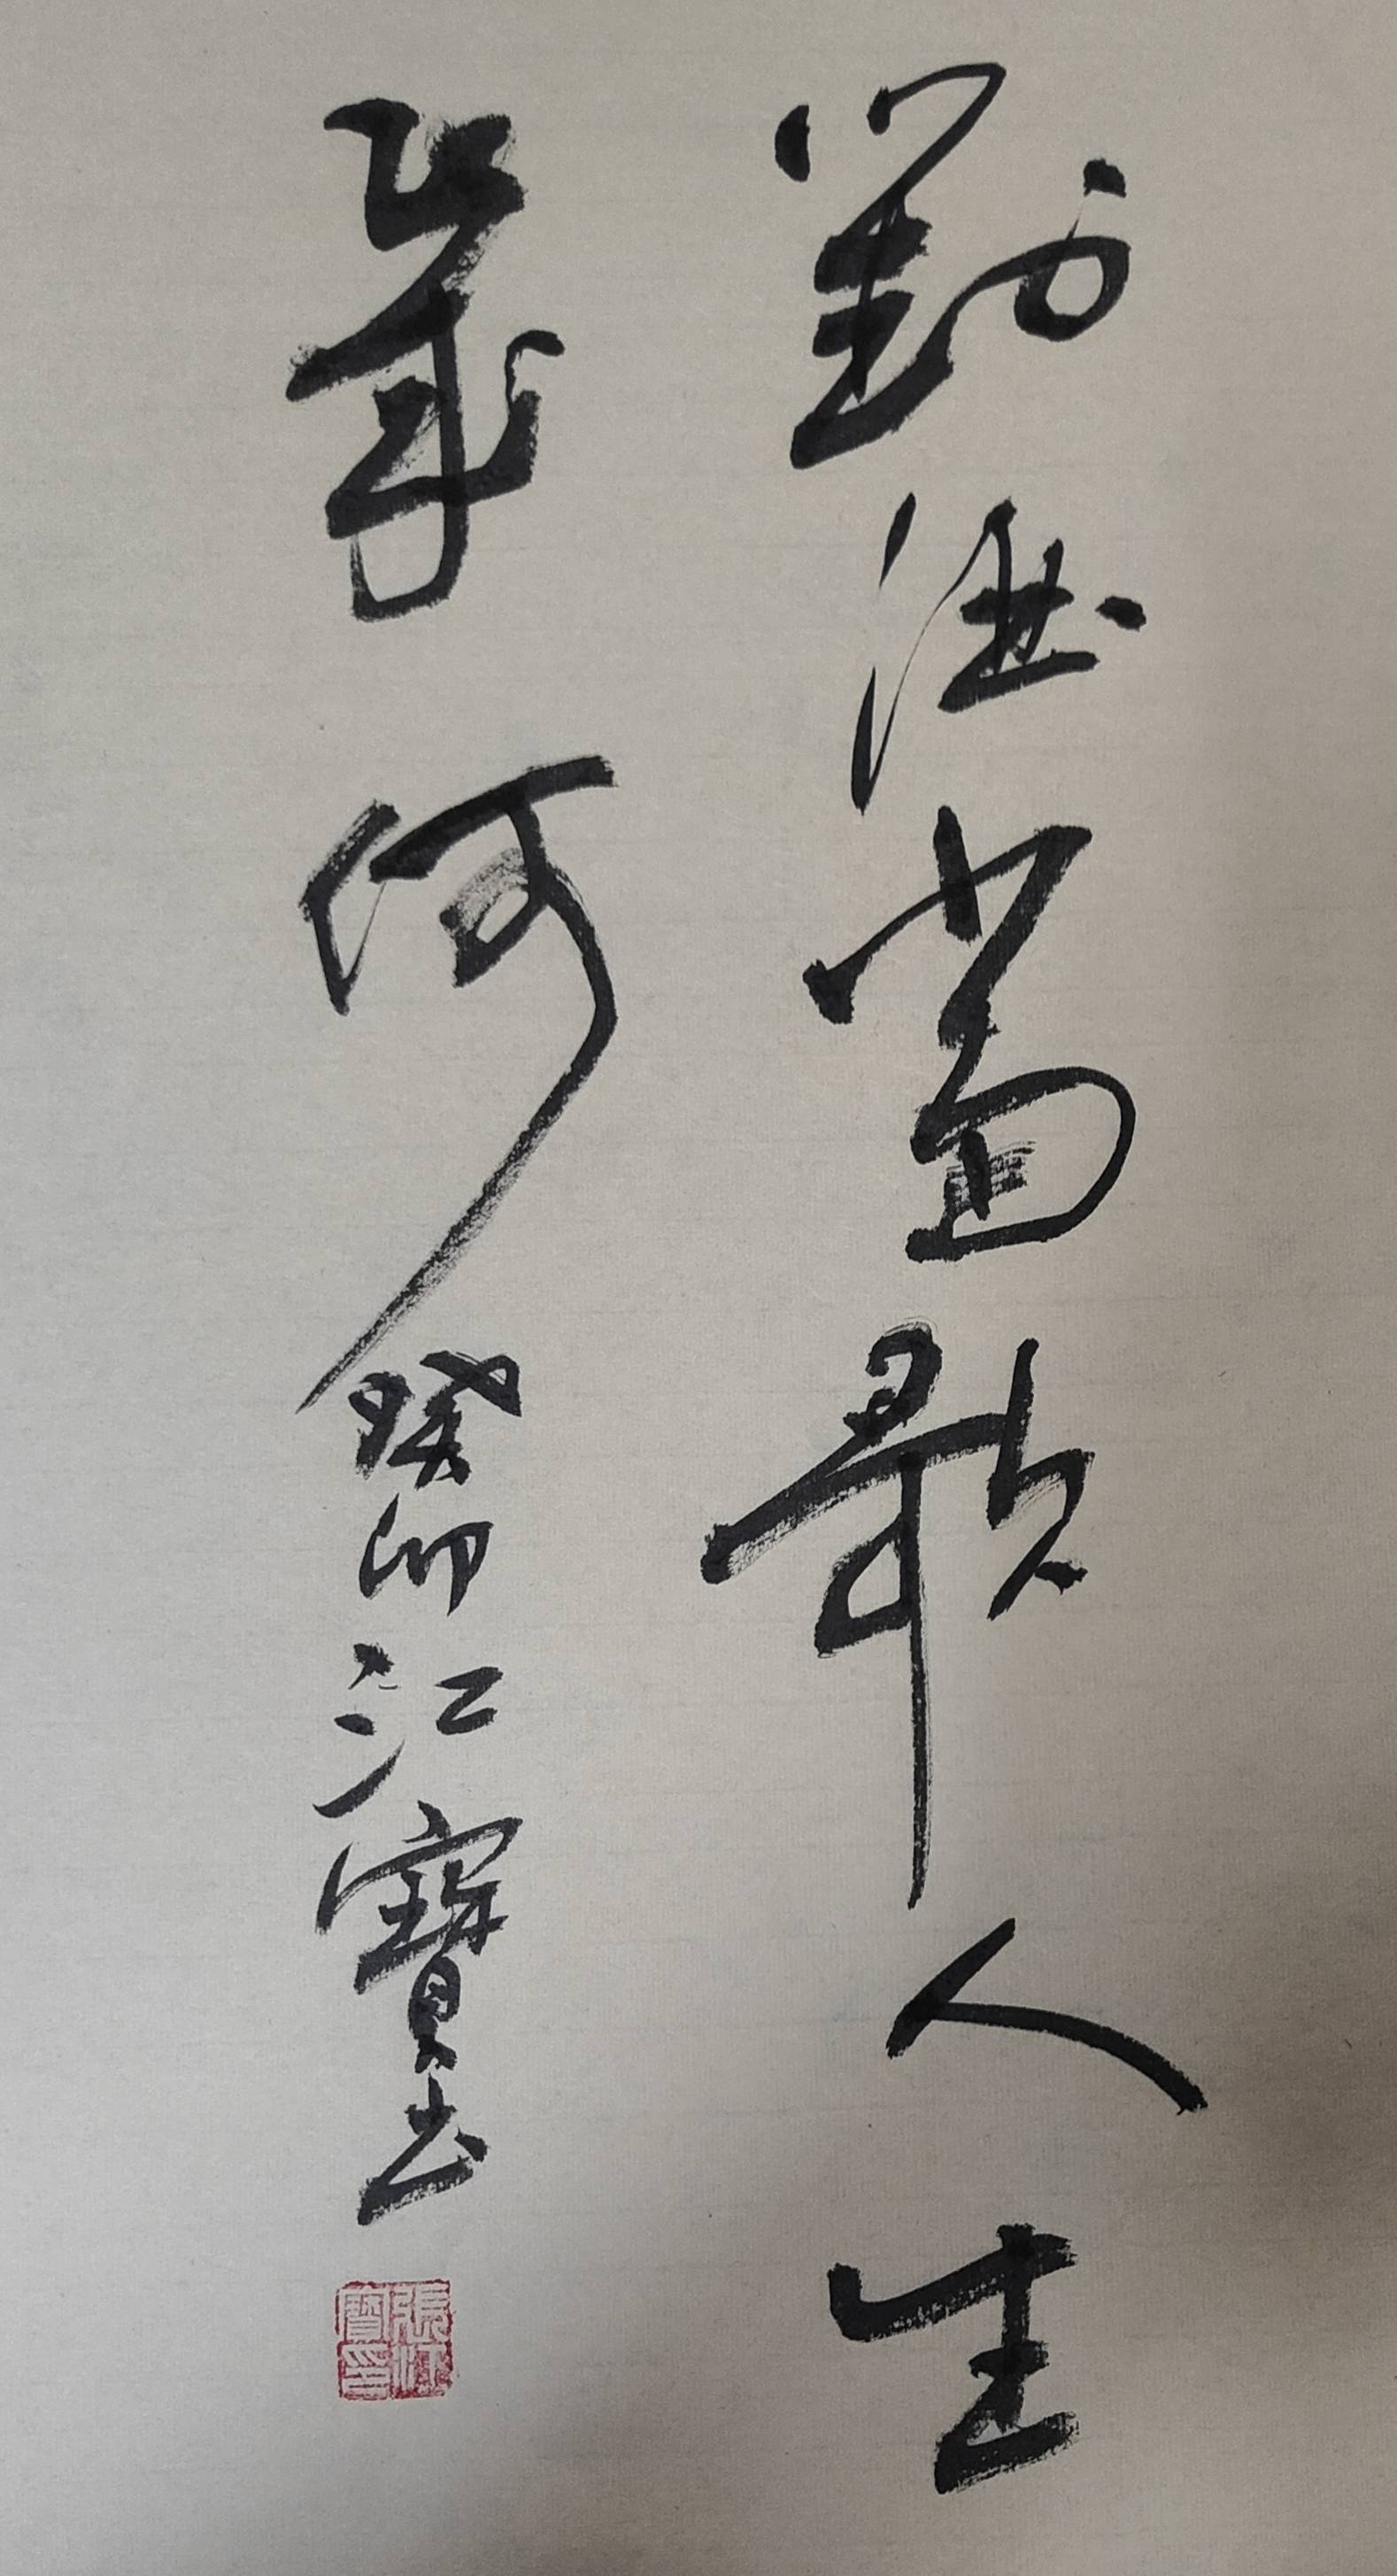 對酒當歌人生
幾何 癸卯江寶書
張江
寶印